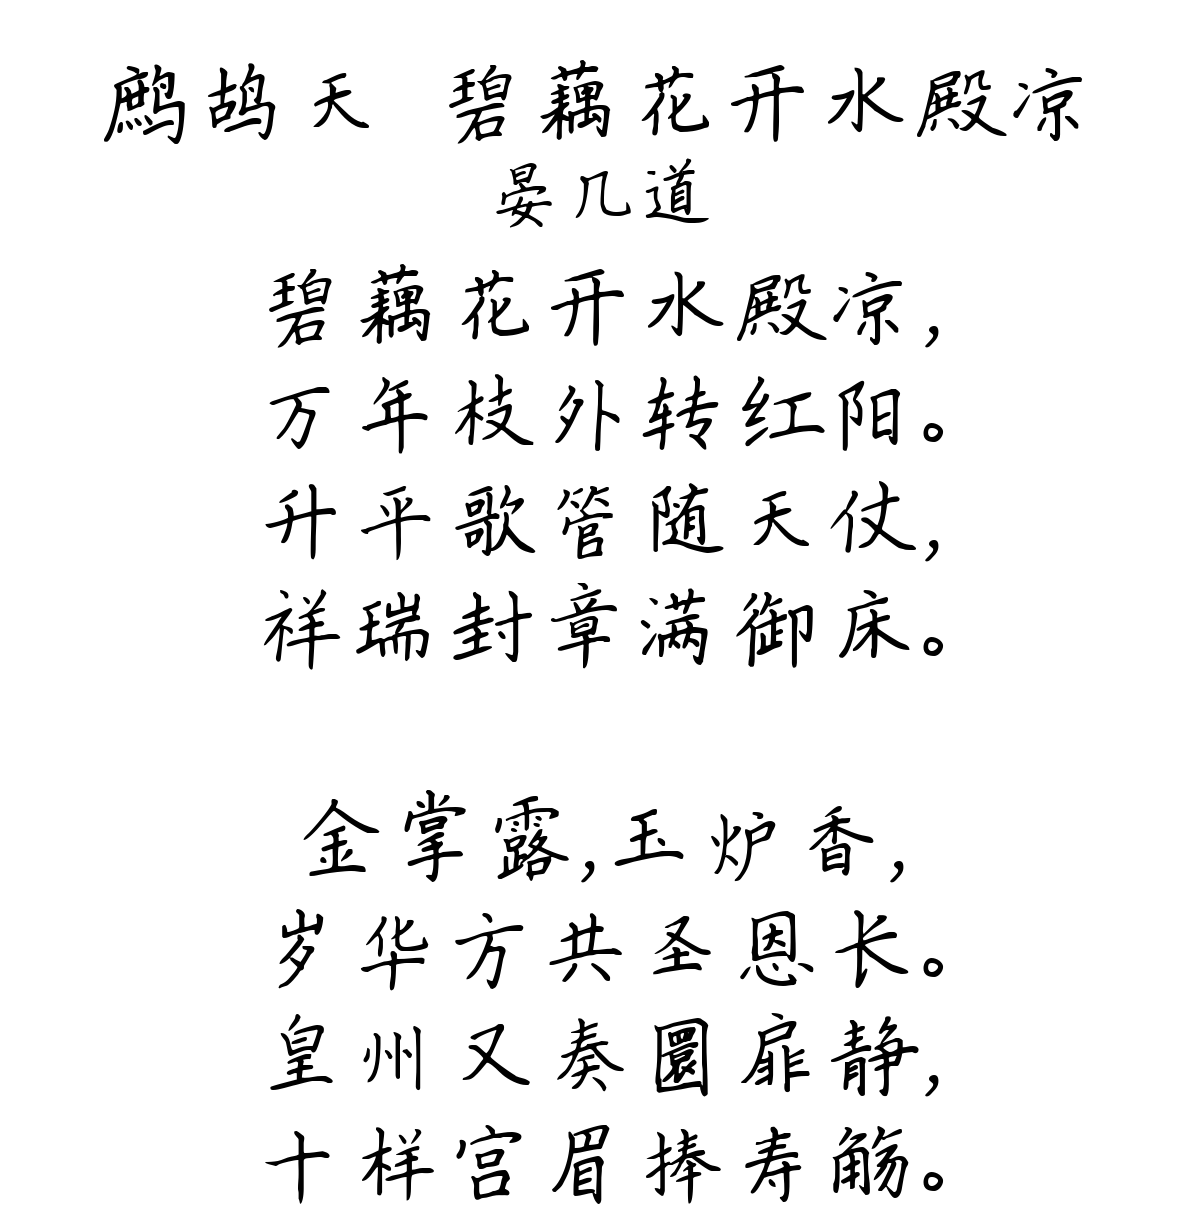 鹧鸪天 碧藕花开水殿凉
晏几道
碧藕花开水殿凉，
万年枝外转红阳。
升平歌管随天仗，
祥瑞封章满御床。
金掌露，玉炉香，
岁华方共圣恩长。
皇州又奏圜扉静，
十样宫眉捧寿觞。